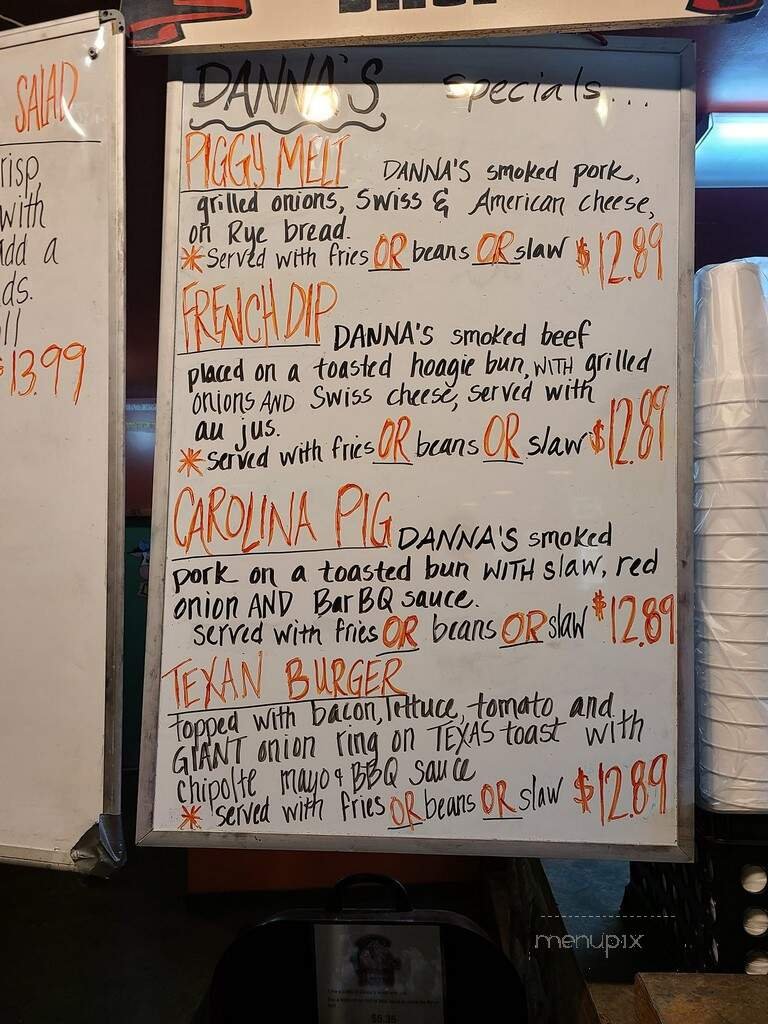 DANNA'S specials...
PIGGY MELT DANNA'S smoked pork,
grilled onions, Swiss & American cheese,
on Rye bread.
*Served with fries OR beans OR slaw $12.89
FRENCH DIP DANNA'S smoked beef
placed on a toasted hoagie bun, WITH grilled
onions AND Swiss cheese, served with
au jus.
*served with fries OR beans OR slaw $12.89
CAROLINA PIG DANNA'S smoked
pork on a toasted bun WITH slaw, red
onion AND BarBQ sauce.
served with fries OR beans OR slaw $12.89
TEXAN BURGER
topped with bacon, lettuce, tomato and
GIANT onion ring on TEXAS toast with
chipolte mayo & BBQ sauce
* served with fries OR beans OR slaw $12.89
SALAD
with
add a
$13.99
menupix